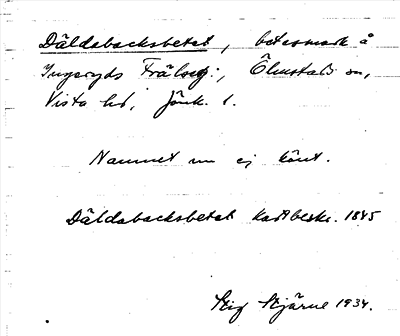 Däldabacksbetet, betesmark å
Ingeryds Frälseg:, Ölmstads sn,
Vista hd, Jönk. l.
Namnet nu ej känt.
Däldabacksbetet kartbeskr. 1845
Stig Stjärne 1934.